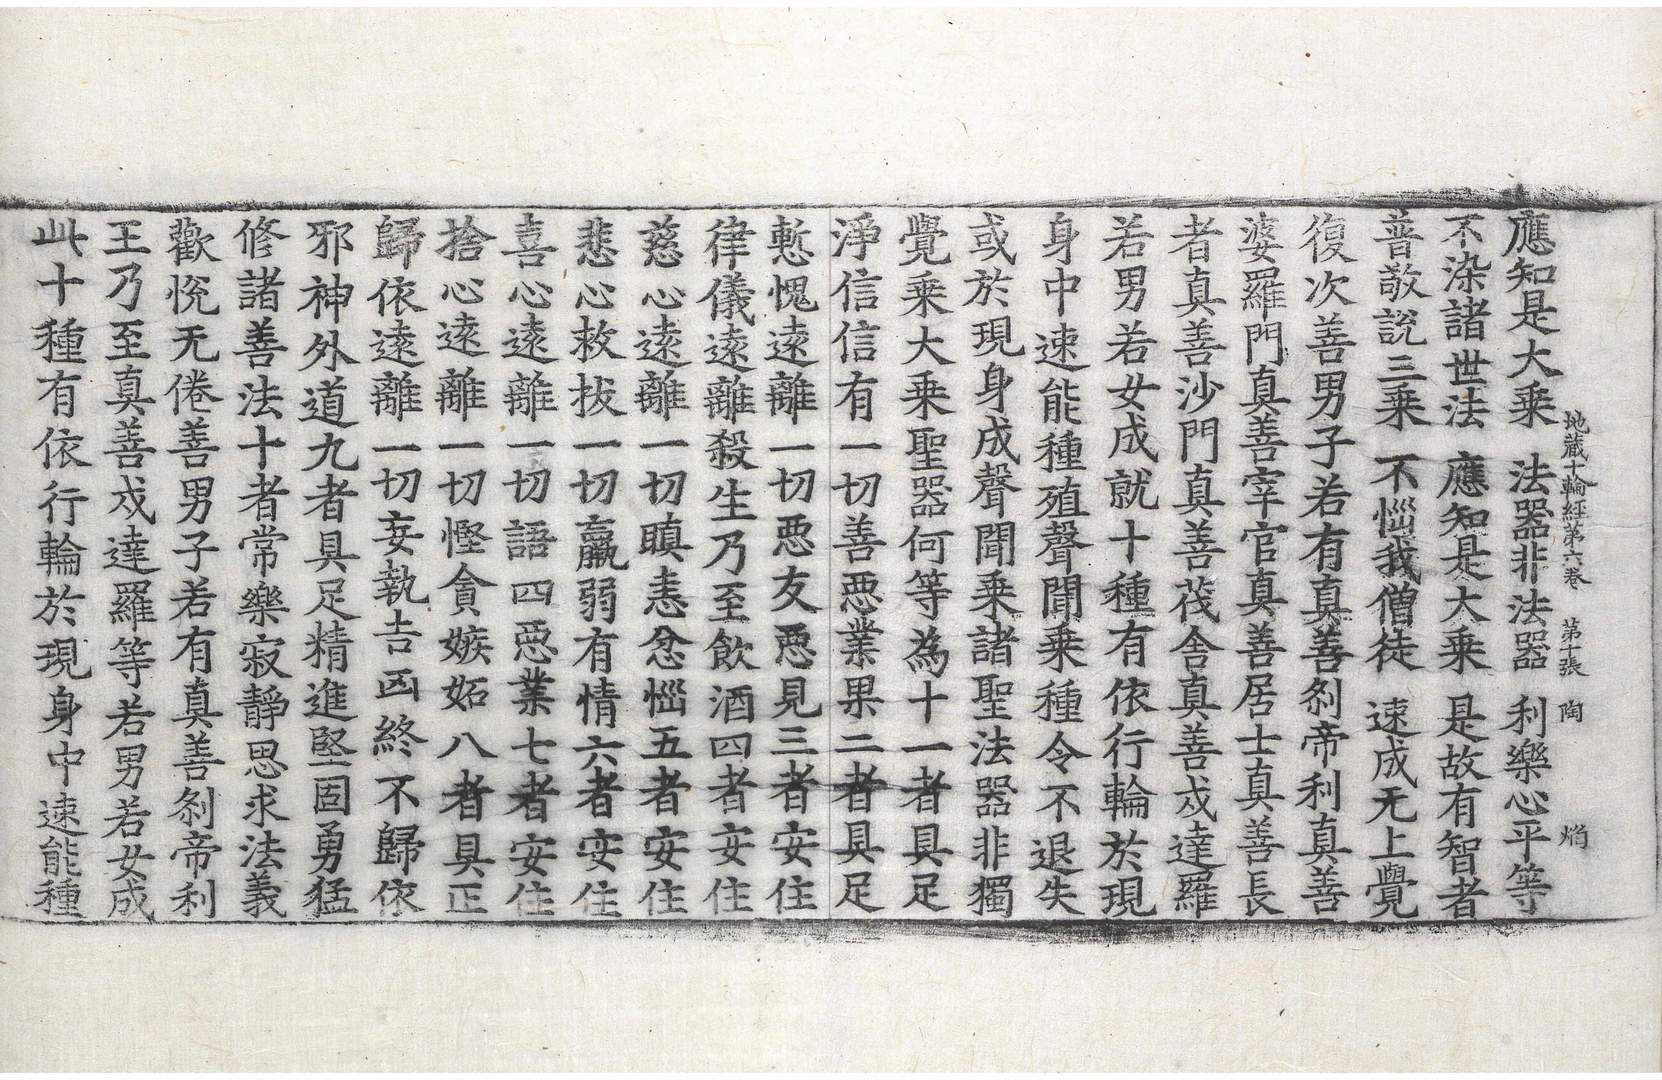 地藏十輪經第六卷　第十張　陶　焰
應知是大乘　法器非法器　利樂心平等
不染諸世法　應知是大乘　是故有智者
普敬說三乘　不惱我僧徒　速成无上覺
復次善男子若有真善剎帝利真善
婆羅門真善宰官真善居士真善長
者真善沙門真善茷舍真善戍達羅
若男若女成就十種有依行輪於現
身中速能種殖聲聞乘種令不退失
或於現身成聲聞乘諸聖法器非獨
覺乘大乘聖器何等為十一者具足
淨信信有一切善惡業果二者具足
慙愧遠離一切惡友惡見三者安住
律儀遠離殺生乃至飲酒四者安住
慈心遠離一切瞋恚忿惱五者安住
悲心救拔一切羸弱有情六者安住
喜心遠離一切語四惡業七者安住
捨心遠離一切慳貪嫉妬八者具正
歸依遠離一切妄執吉凶終不歸依
邪神外道九者具足精進堅固勇猛
修諸善法十者常樂寂靜思求法義
歡悅无倦善男子若有真善剎帝利
王乃至真善戍達羅等若男若女成
此十種有依行輪於現身中速能種